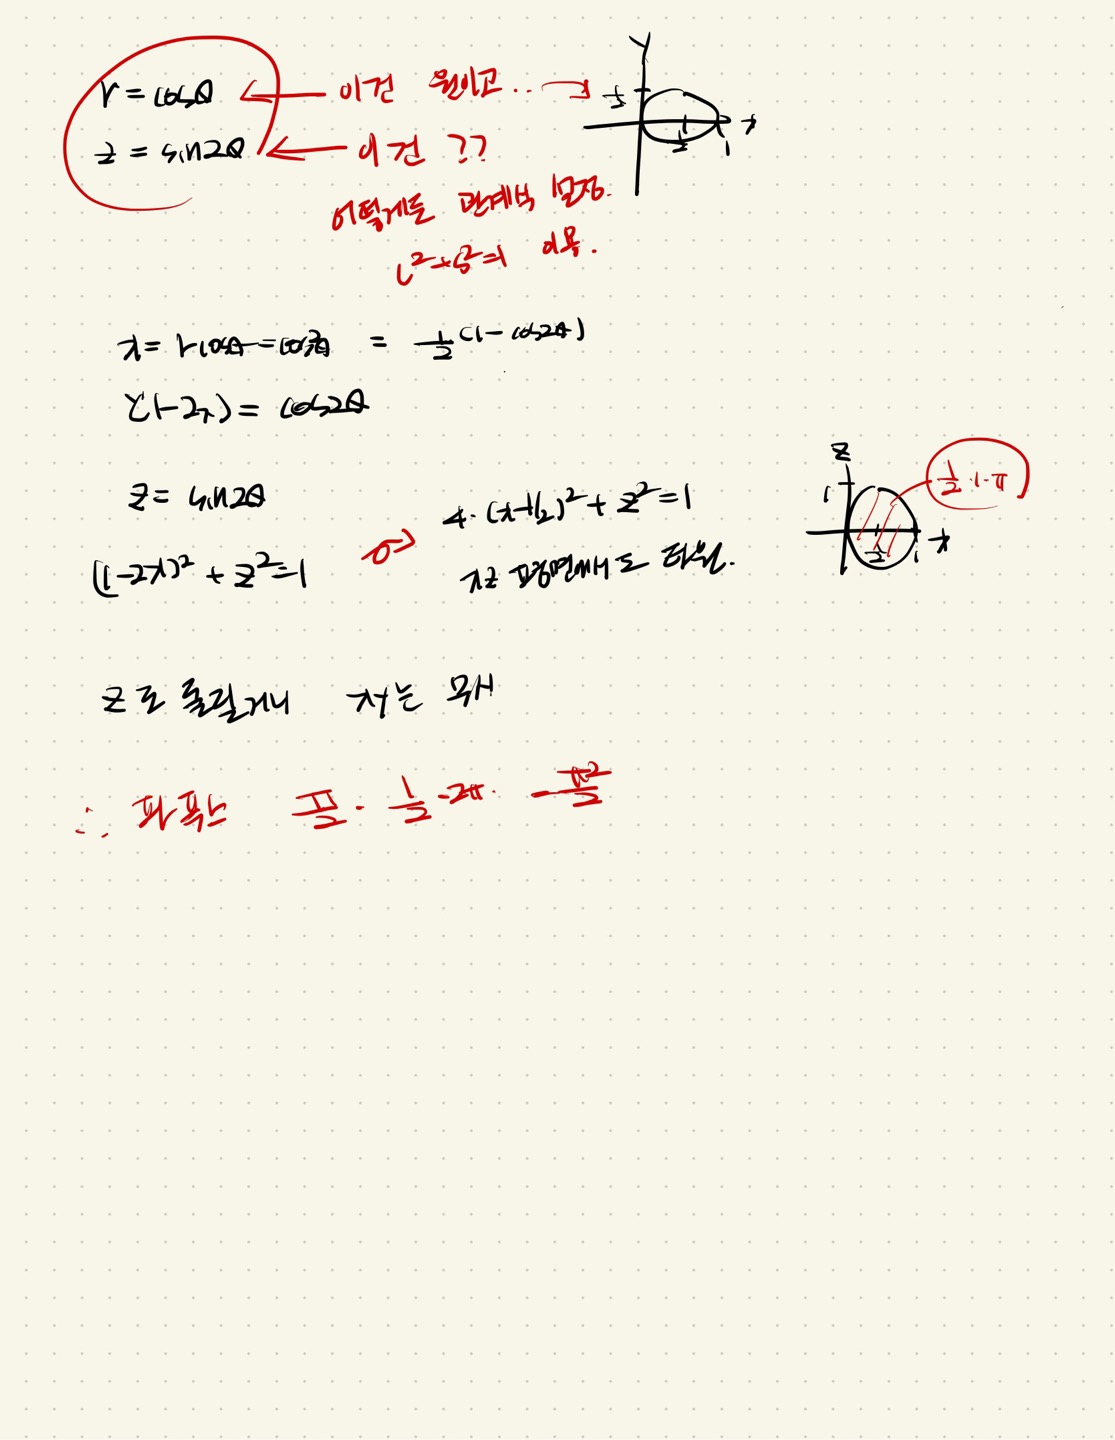 r = cosθ ← 이건 원이고.. →
z = sin2θ ← 이건 ??
어떻게든 관계식 설정.
c²+s²=1 이용.
Y
½
x
½ 1
x = rcosθ = cos²θ = ½(1 - cos2θ)
(1-2x) = cos2θ
z = sin2θ
(1-2x)² + z² = 1
⇒ 4·(x-1/2)² + z² = 1
xz 평면에서도 타원.
z
1
½·1·π
x
½ 1
z로 돌릴거니 xy는 무시
∴ 파푸스 π/2 · 1/2 · 2π = π²/2